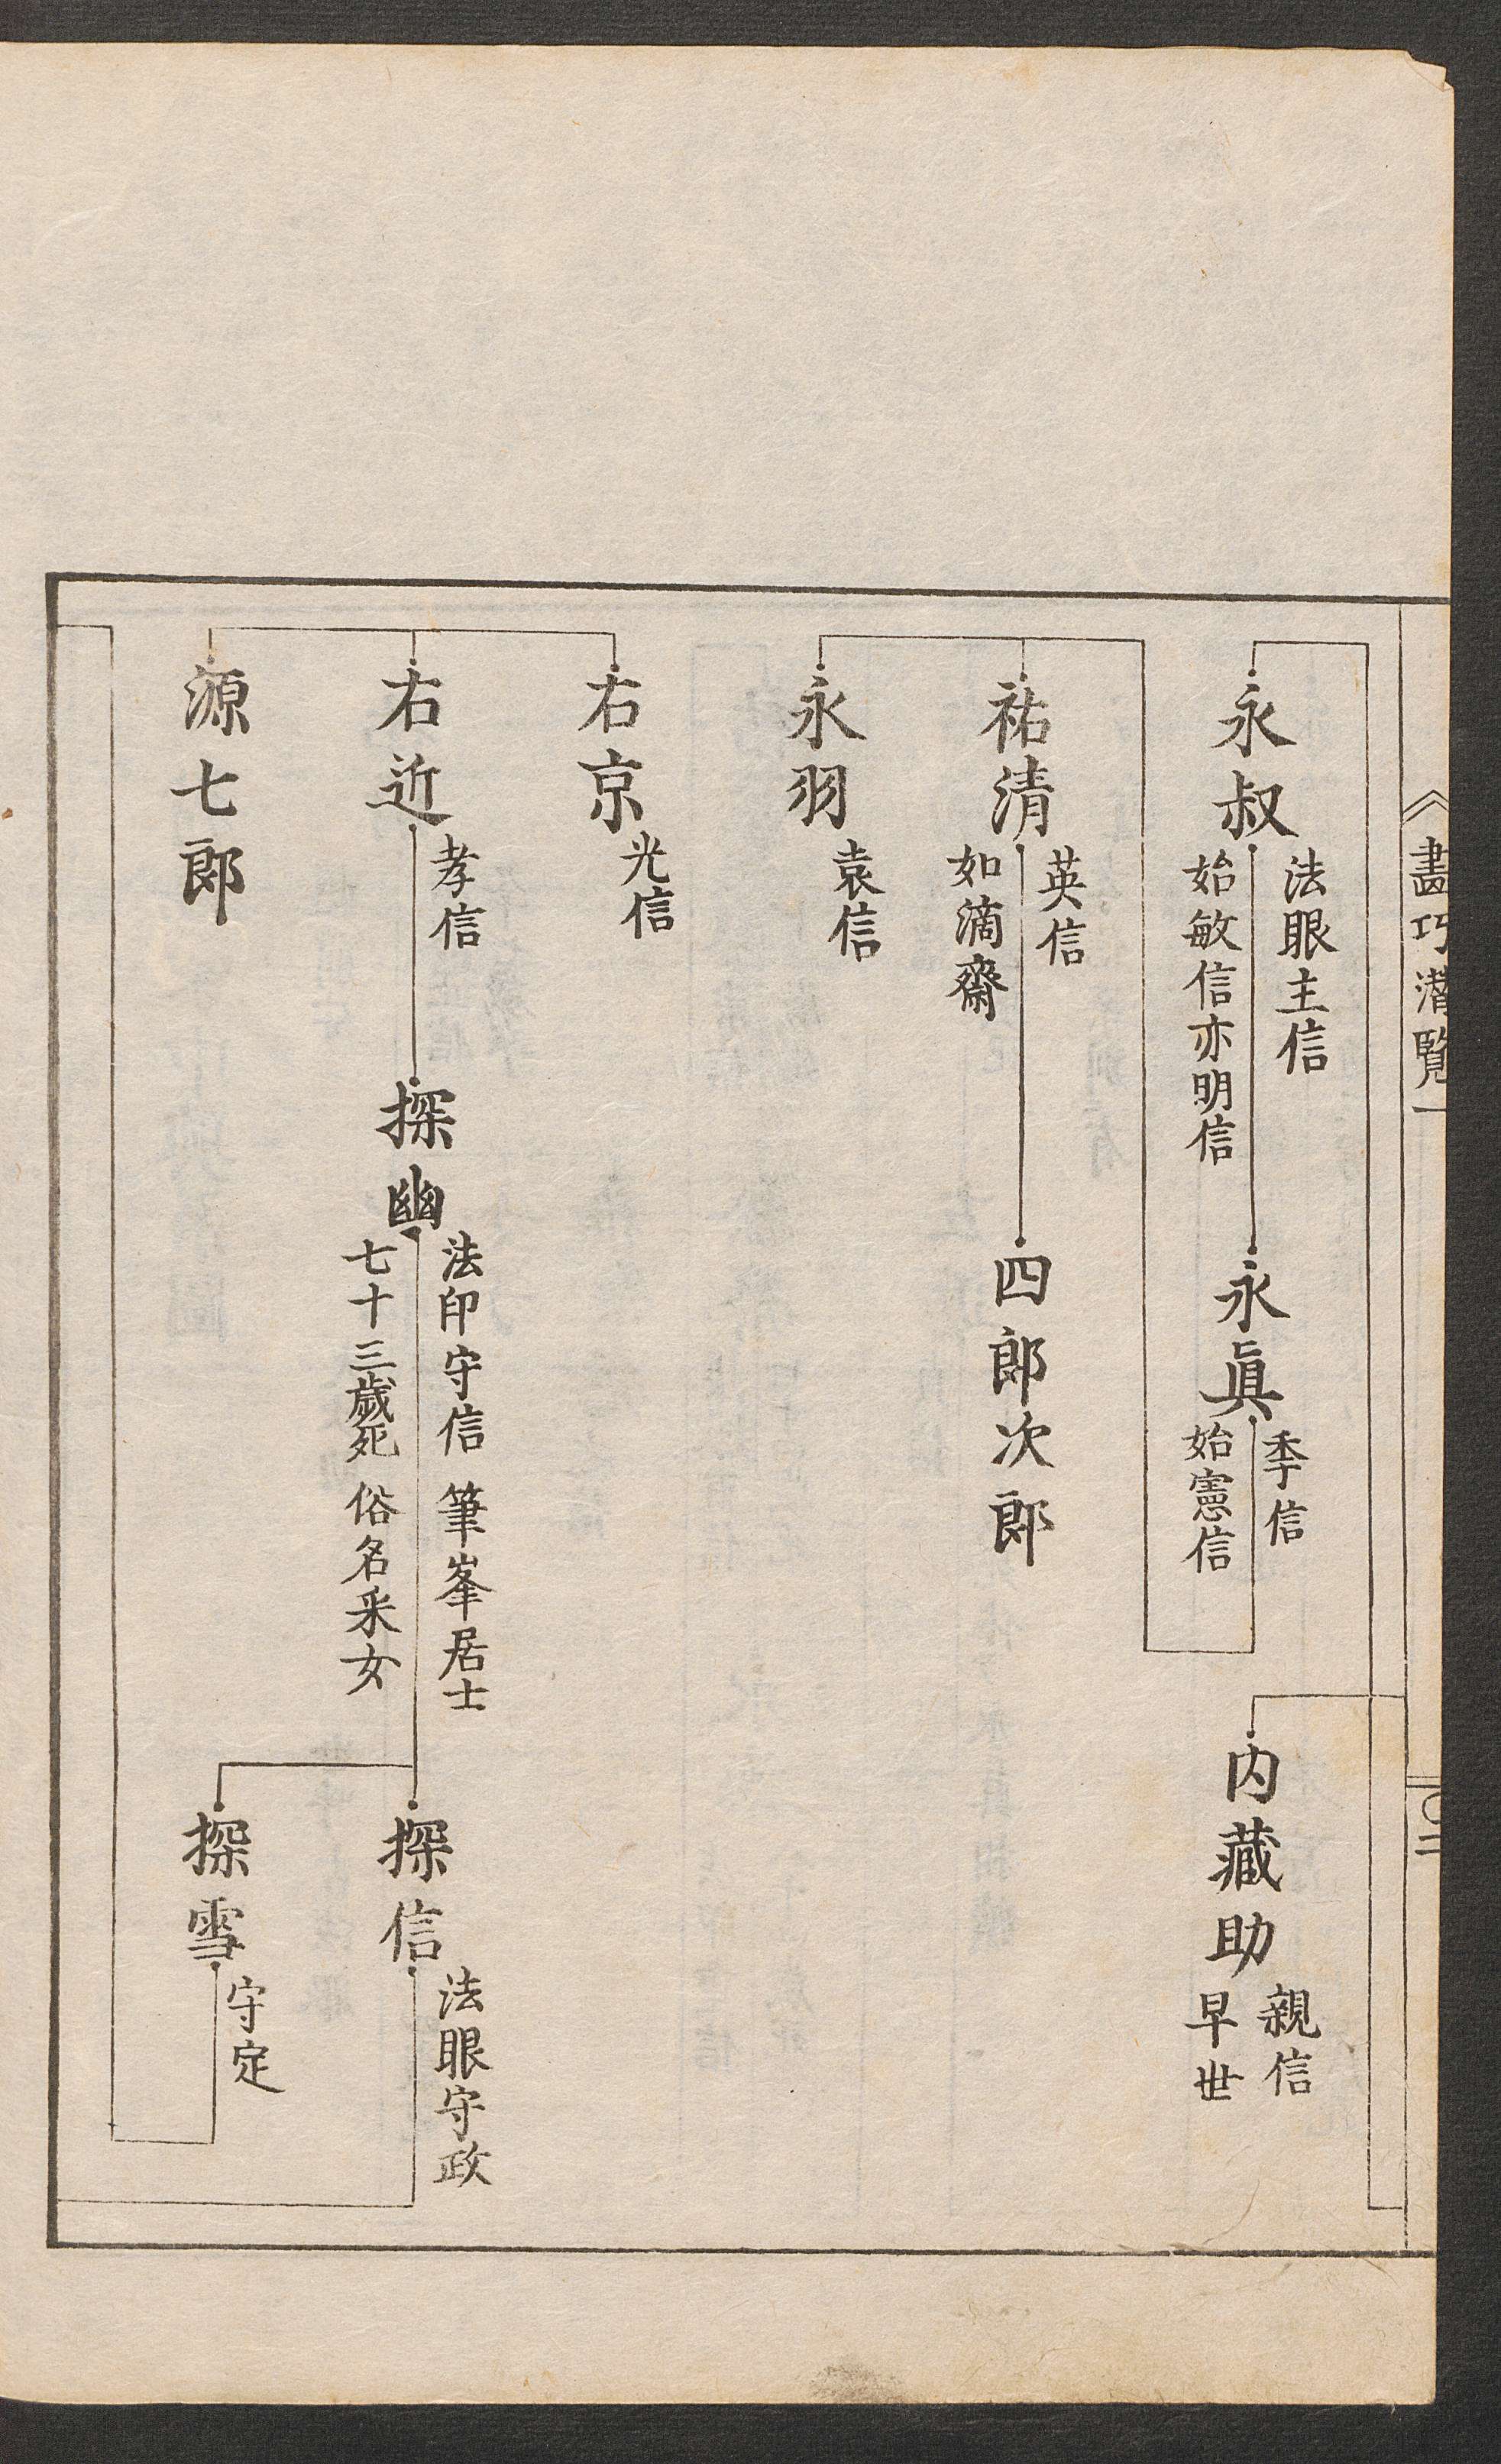 畫巧潜覧一
〇二
永叔
法眼主信
始敏信亦明信
永眞
季信
始憲信
内藏助
親信
早世
祐清
英信
如滴齋
四郎次郎
永羽
袁信
右京
光信
右近
孝信
探幽
法印守信 筆峯居士
七十三歳死 俗名采女
探信
法眼守政
探雪
守定
源七郎